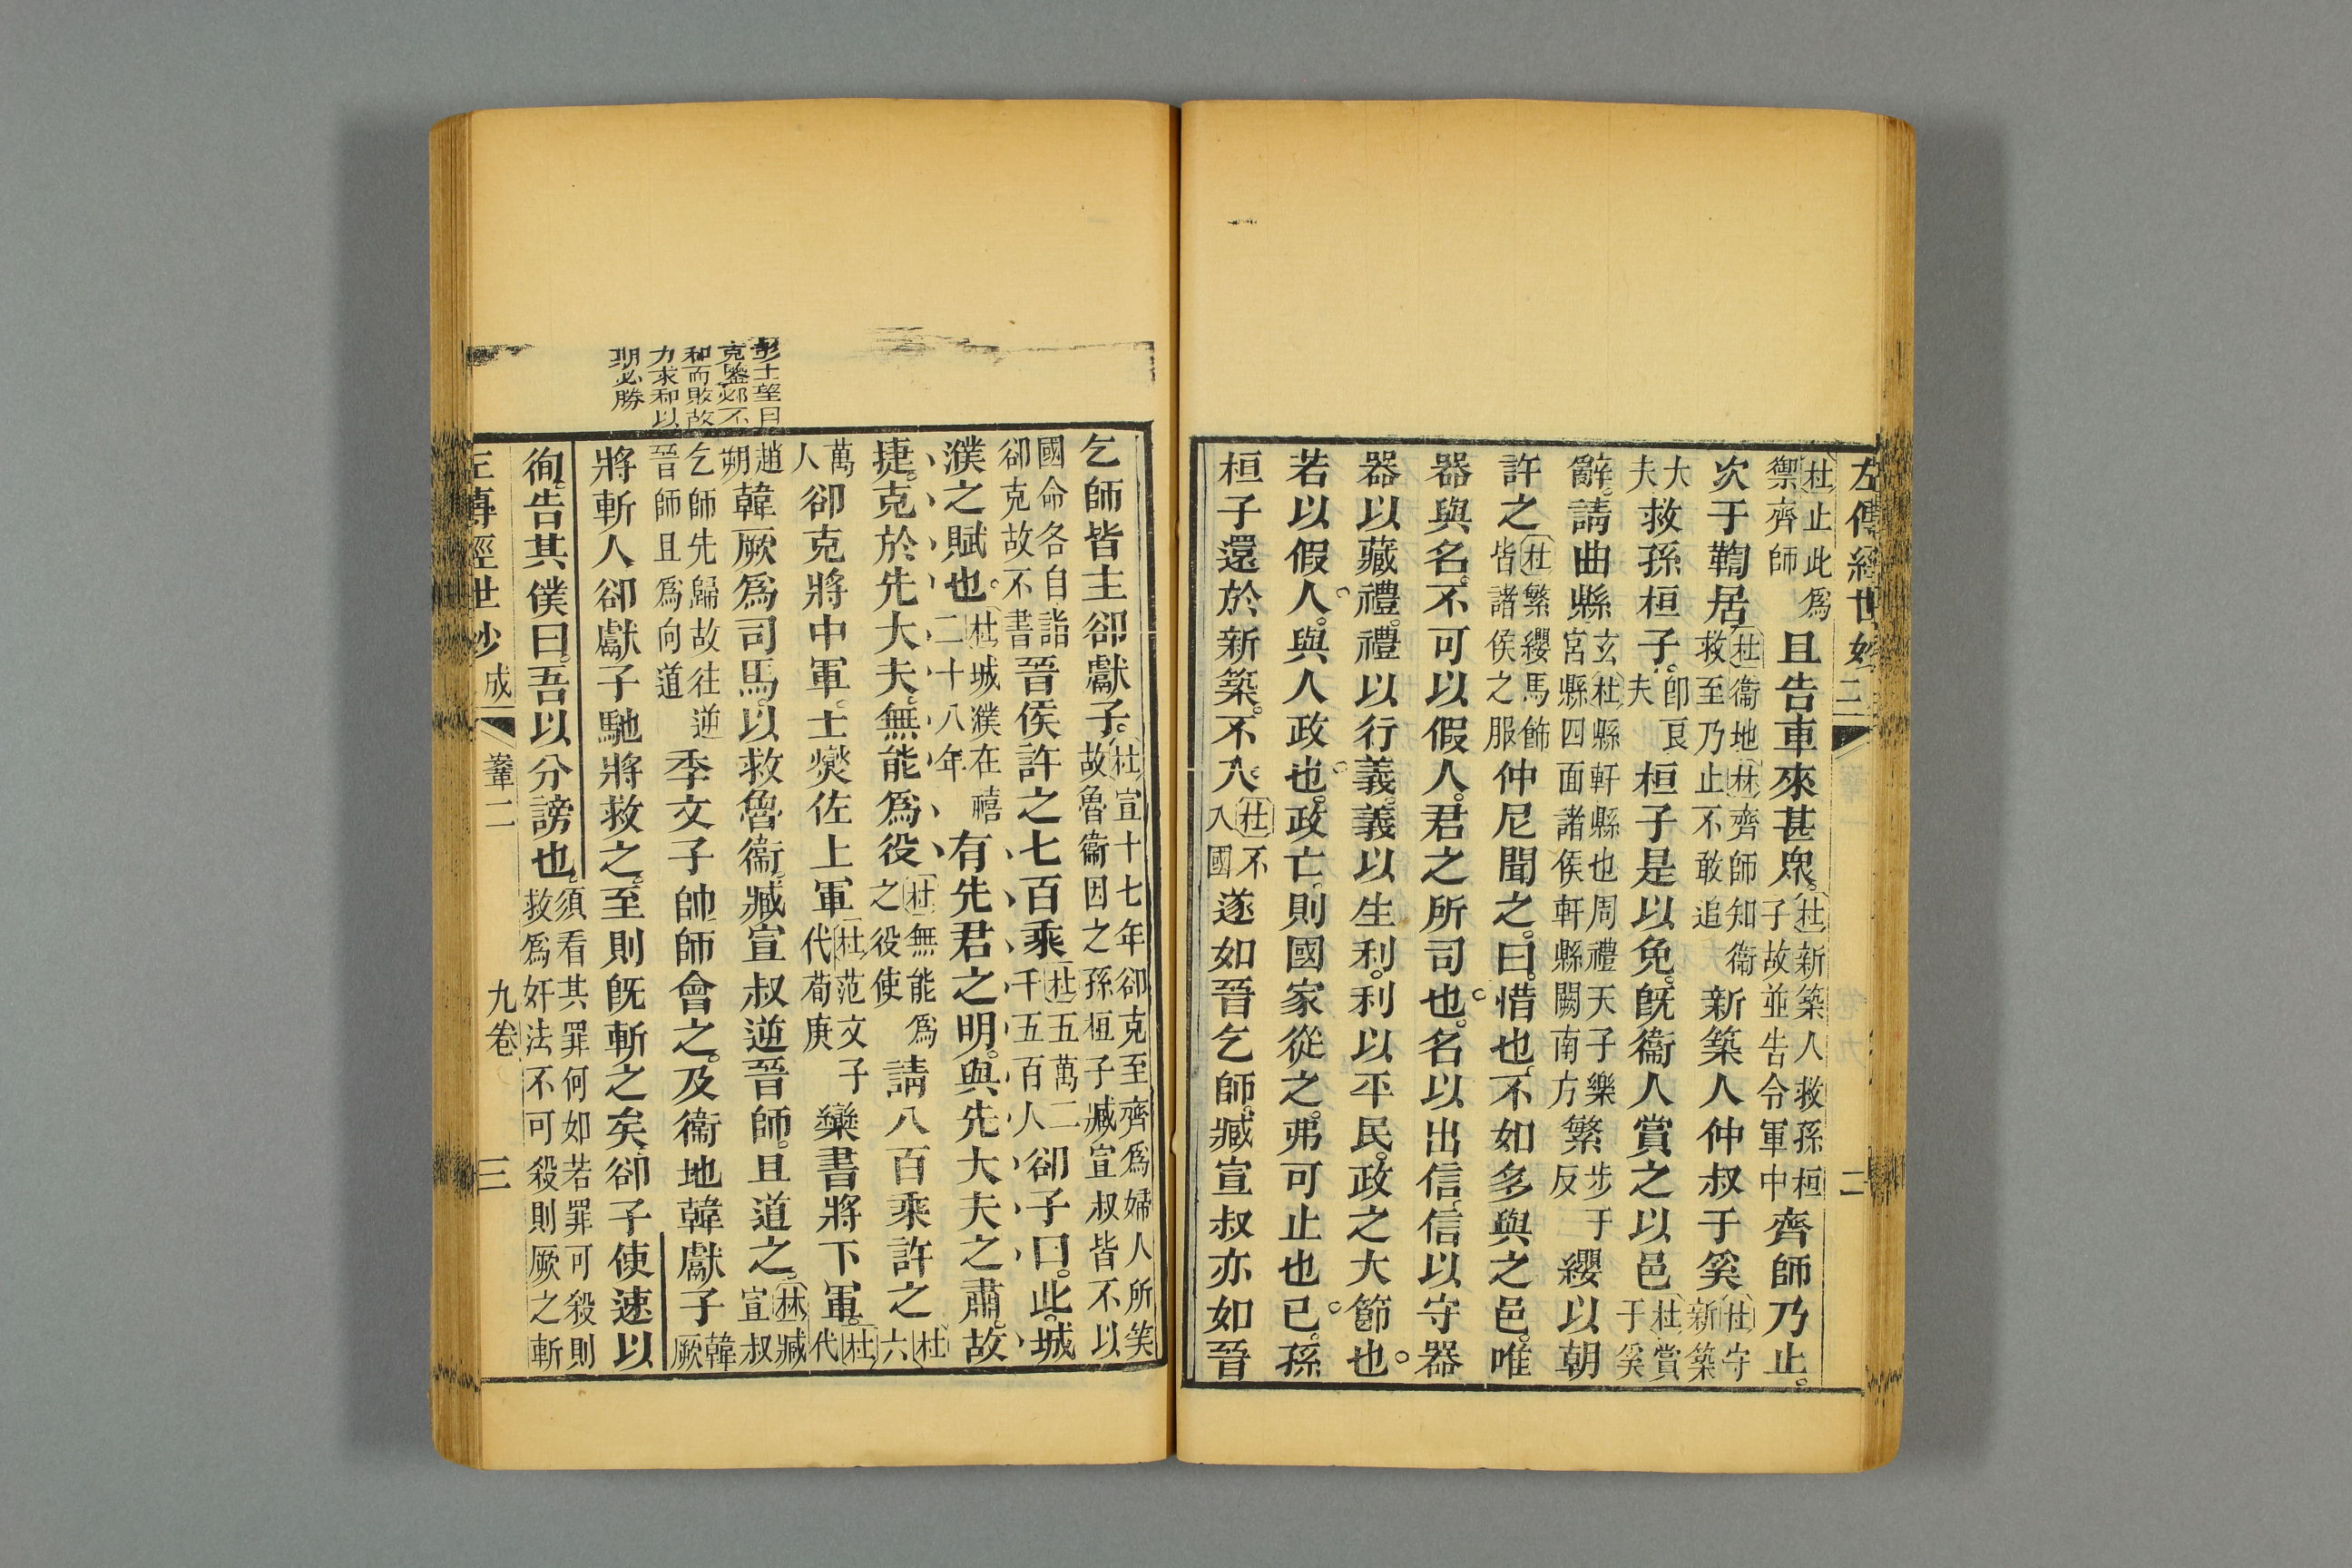 左傳經世鈔
二
杜止此爲禦齊師且告車來甚衆。杜新築人救孫桓子故並告令軍中齊師乃止。
次于鞫居杜衞地林齊師知衞救至乃止不敢追新築人仲叔于奚杜守新築
大夫救孫桓子。卽良夫桓子是以免。旣衞人賞之以邑杜賞于奚
辭。請曲縣玄杜縣軒縣也周禮天子樂宮縣四面諸侯軒縣闕南方繁步于反纓以朝
許之杜繁纓馬飾皆諸侯之服仲尼聞之。曰。惜也。不如多與之邑。唯
器與名。不可以假人。君之所司也。名以出信。信以守器
器以藏禮。禮以行義。義以生利。利以平民。政之大節也。
若以假人。與人政也。政亡。則國家從之。弗可止也已。孫
桓子還於新築。不入。杜不入國遂如晉乞師。臧宣叔亦如晉
乞師皆主卻獻子。杜宣十七年卻克至齊爲婦人所笑故魯衞因之孫桓子臧宣叔皆不以
國命各自詣卻克故不書晉侯許之七百乘杜五萬二千五百人卻子曰。此。城
濮之賦也。杜城濮在禧二十八年有先君之明。與先大夫之肅。故
捷。克於先大夫。無能爲役杜無能爲之役使請八百乘許之杜六
萬人卻克將中軍。士燮佐上軍杜范文子代荀庚欒書將下軍。杜代
趙朔韓厥爲司馬。以救魯衞。臧宣叔逆晉師。且道之。林臧宣叔
乞師先歸故往逆晉師且爲向道季文子帥師會之。及衞地韓獻子韓厥
將斬人卻獻子馳將救之。至則旣斬之矣。卻子使速以
徇。告其僕曰。吾以分謗也。須看其罪何如若罪可殺則救爲奸法不可殺則厥之斬
彭士望曰
克鑒邲不
和而敗故
力求和以
期必勝
左傳經世鈔
成
鞌二
九卷
三